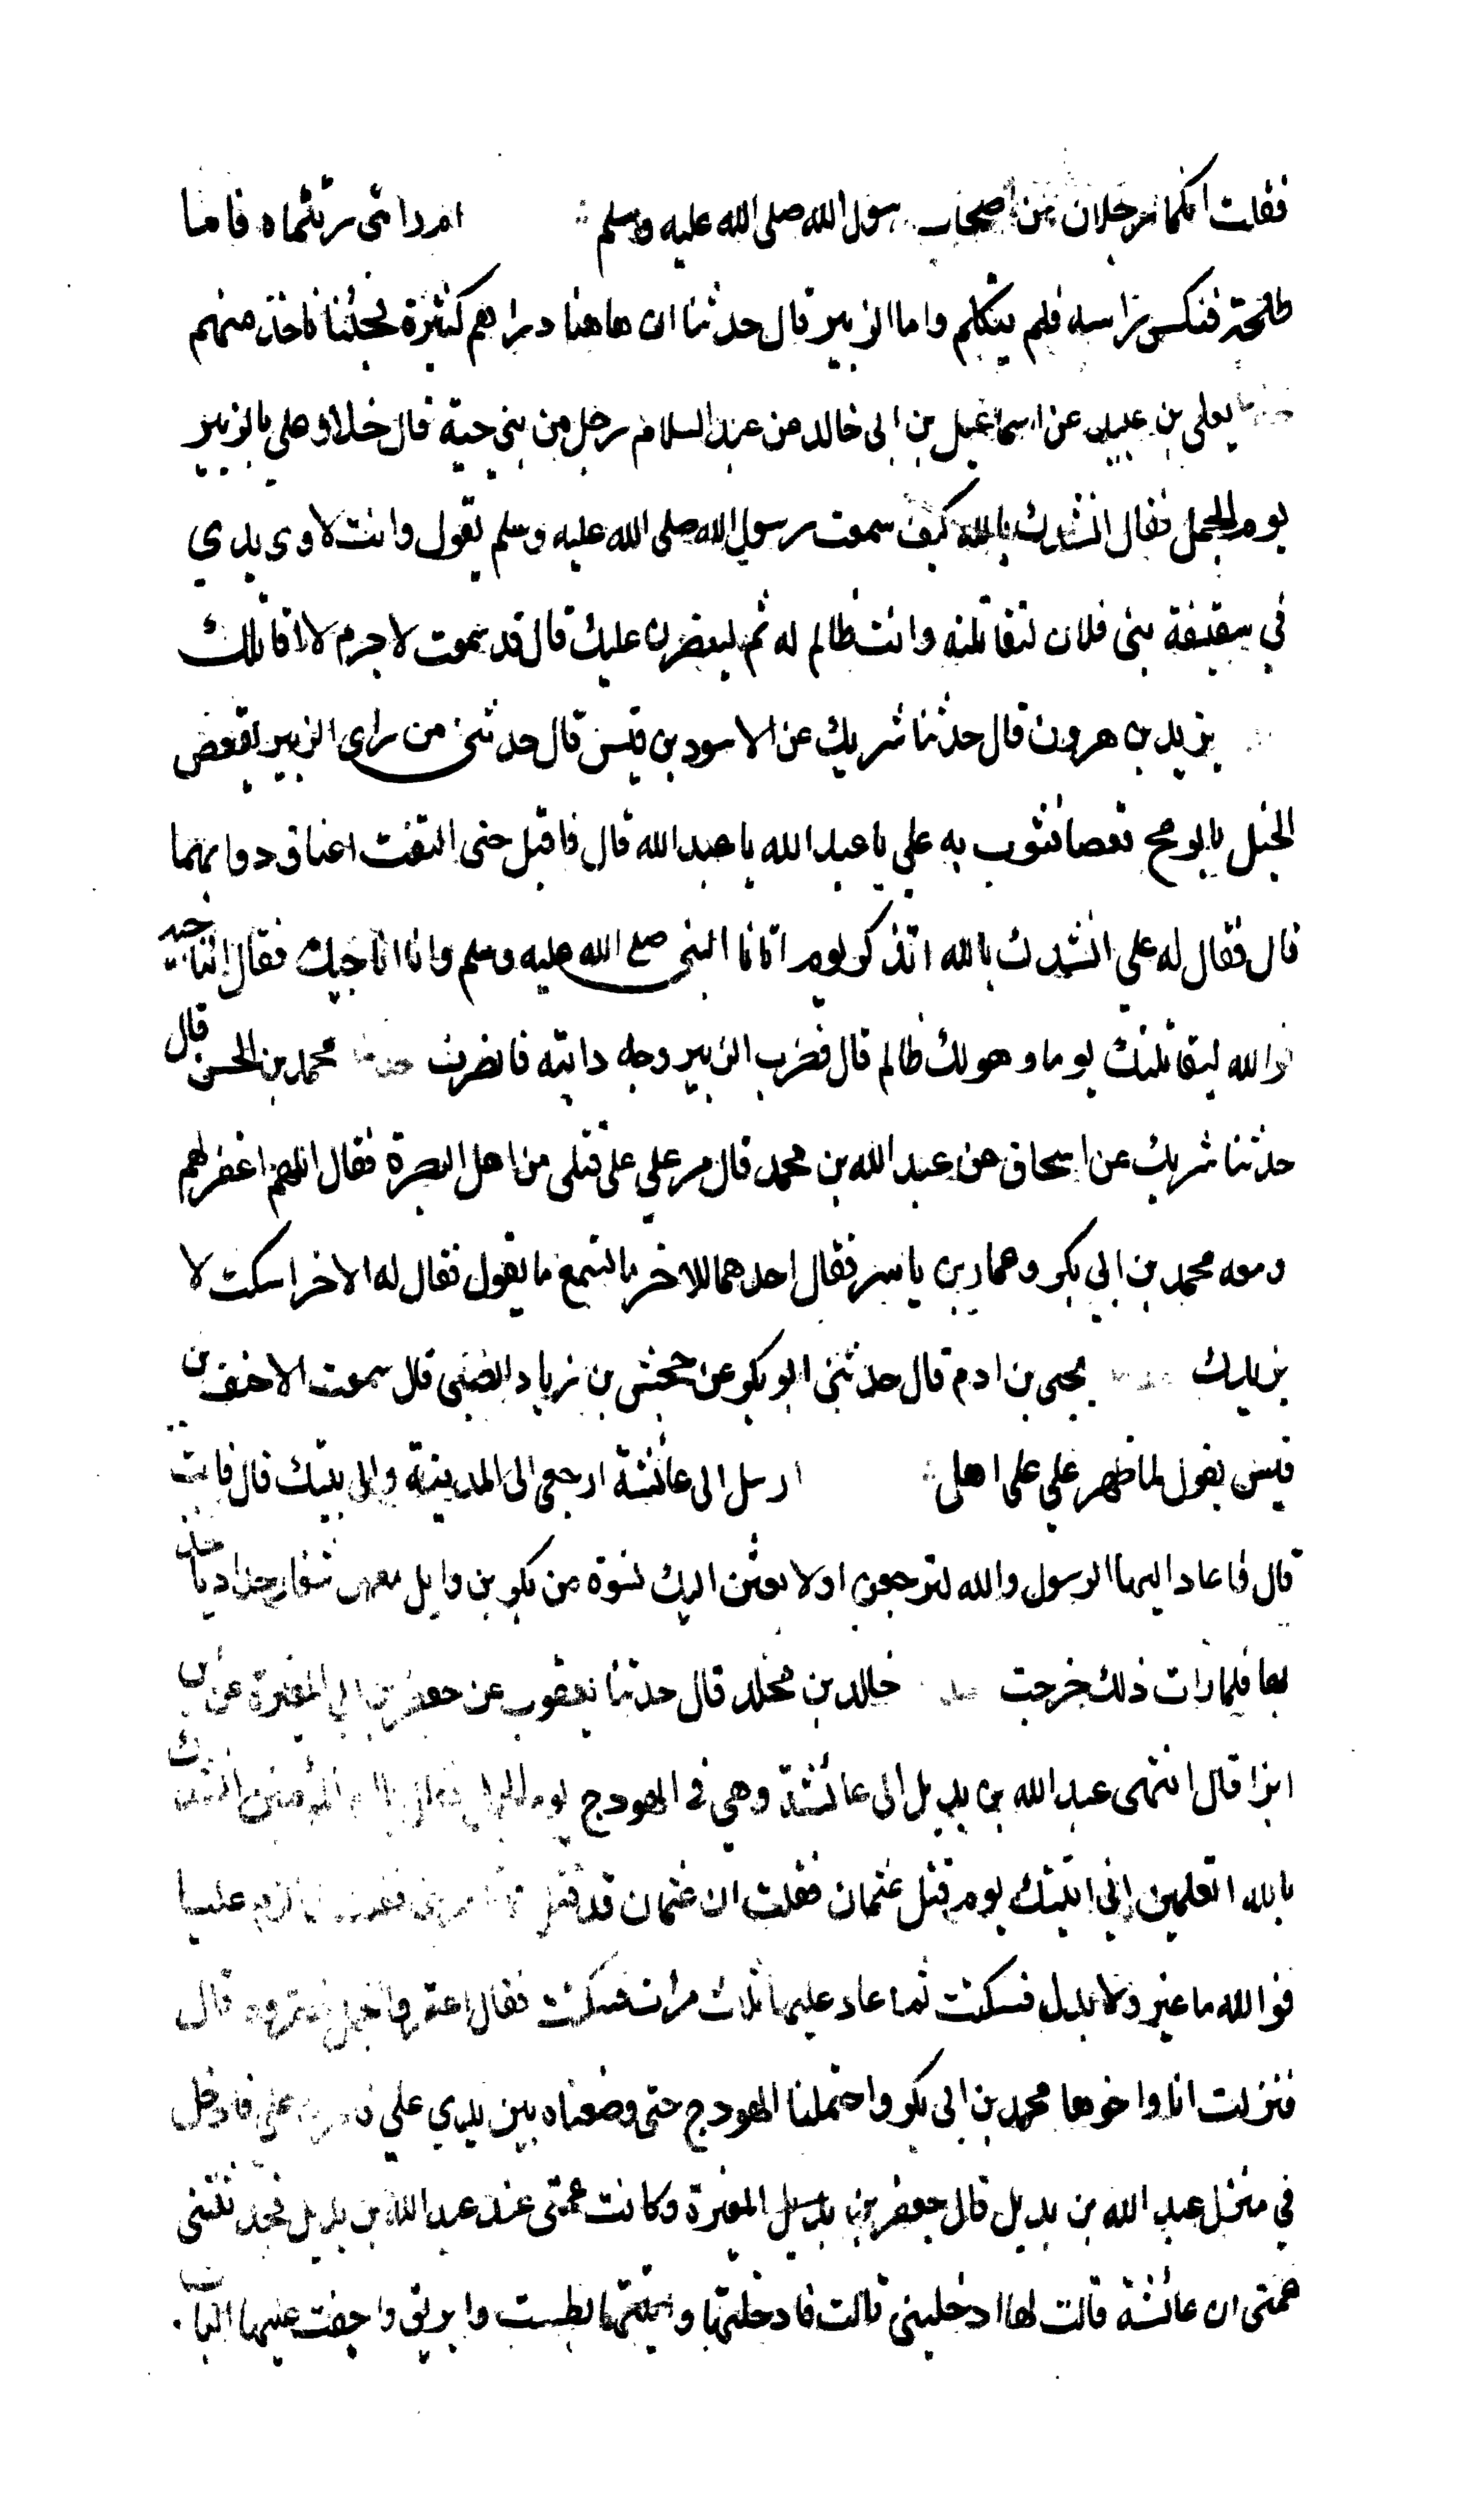 فقلت انكما رجلان من اصحاب رسول الله صلى الله عليه وسلم امر راي رئتماه فاما
طلحة فنكس راسه فلم يتكلم واما الزبير قال حدثنا ان هاهنا دراهم كثيرة فجئنا ناخذ منهم
حدثنا يعلى بن عبيد عن اسماعيل بن ابى خالد عن عبد السلام رجل من بني حية قال خلا وعلي بالزبير
يوم الجمل فقال انشدك بالله كيف سمعت رسول الله صلى الله عليه وسلم يقول وانت لاوى يدي
في سقيفة بنى فلان لتقاتلنه وانت ظالم له ثم لينصرن عليك قال قد سمعت لا جرم لا اقاتلك
يزيد بن هرون قال حدثنا شريك عن الاسود بن قيس قال حدثني من راى الزبير يقعص
الخيل بالرمح قعصا فثوب به علي يا عبد الله يا عبد الله قال فاقبل حتى التقت اعناق دوابهما
قال فقال له علي انشدك بالله اتذكر يوم اتانا النبى صلى الله عليه وسلم وانا اناجيك فقال اتناجيه
فوالله ليقاتلنك يوما وهو لك ظالم قال فضرب الزبير وجه دابته فانصرف حدثنا محمد بن الحسن قال
حدثنا شريك عن اسحاق عن عبد الله بن محمد قال مر علي على قتلى من اهل البصرة فقال اللهم اغفر لهم
ومعه محمد بن ابي بكر وعمار بن ياسر فقال احدهما للاخر ما تسمع ما يقول فقال له الاخر اسكت لا
يزيدك حدثنا يحيى بن ادم قال حدثنى ابو بكر عن جحش بن زياد الضبى قال سمعت الاحنف بن
قيس يقول لما ظهر علي على اهل ارسل الى عائشة ارجعى الى المدينة والى بيتك قال فابت
قال فاعاد اليها الرسول والله لترجعن او لابعثن اليك نسوة من بكر بن وايل معهن شفار حداد ياخذنك
بها فلما رات ذلك خرجت حدثنا خالد بن مخلد قال حدثنا يعقوب عن جعفر بن ابي المغيرة عن بن
ابزا قال انتهى عبد الله بن بديل الى عائشة وهي في الهودج يوم الجمل فقال يا ام المؤمنين انشدك
بالله اتعلمين اني اتيتك يوم قتل عثمان فقلت ان عثمان قد قتل فما تامرينى فقلت لي الزم عليا
فوالله ما غير ولا بدل فسكتت ثم اعاد عليها ثلاث مرات فسكتت فقال اعقروا الجمل فعقروه قال
فنزلت انا واخوها محمد بن ابى بكر واحتملنا الهودج حتى وضعناه بين يدي علي فامر به علي فادخل
في منزل عبد الله بن بديل قال جعفر بن ابي المغيرة وكانت عمتى عند عبد الله بن بديل فحدثتنى
عمتى ان عائشة قالت لها ادخلينى قالت فادخلتها واتيتها بطست وابريق واجفت عليها الباب